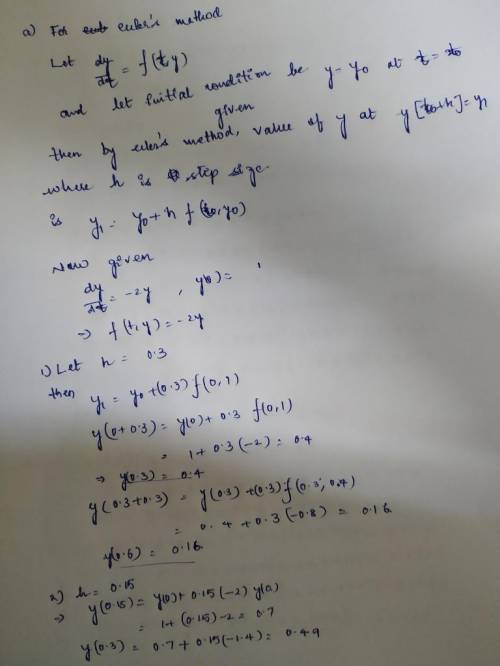 a) For euler's method
Let dy/dt = f(t,y)
and let initial condition be y=y0 at t=t0
given
then by euler's method, value of y at y[t0+h]=y1
where h is step size.
is y1 = y0 + h f(t0,y0)
Now given
dy/dt = -2y , y(0) = 1
⇒ f(t,y) = -2y
1) Let h = 0.3
then y1 = y0 + (0.3) f(0,1)
y(0+0.3) = y(0) + 0.3 f(0,1)
= 1 + 0.3(-2) = 0.4
⇒ y(0.3) = 0.4
y(0.3+0.3) = y(0.3) + (0.3) f(0.3, 0.4)
= 0.4 + 0.3(-0.8) = 0.16
y(0.6) = 0.16
2) h = 0.15
⇒ y(0.15) = y(0) + 0.15(-2) y(0)
= 1 + (0.15)-2 = 0.7
y(0.3) = 0.7 + 0.15(-1.4) = 0.49